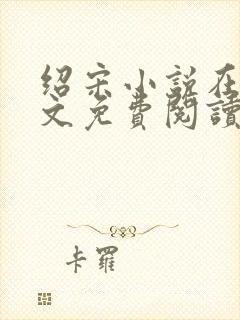 绍宋小说在
文免費閱讀
卡羅